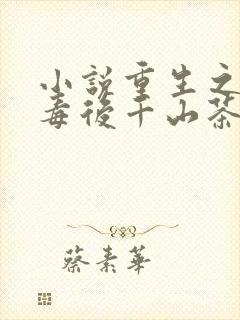 小說重生之
毒後千山茶
蔡素華